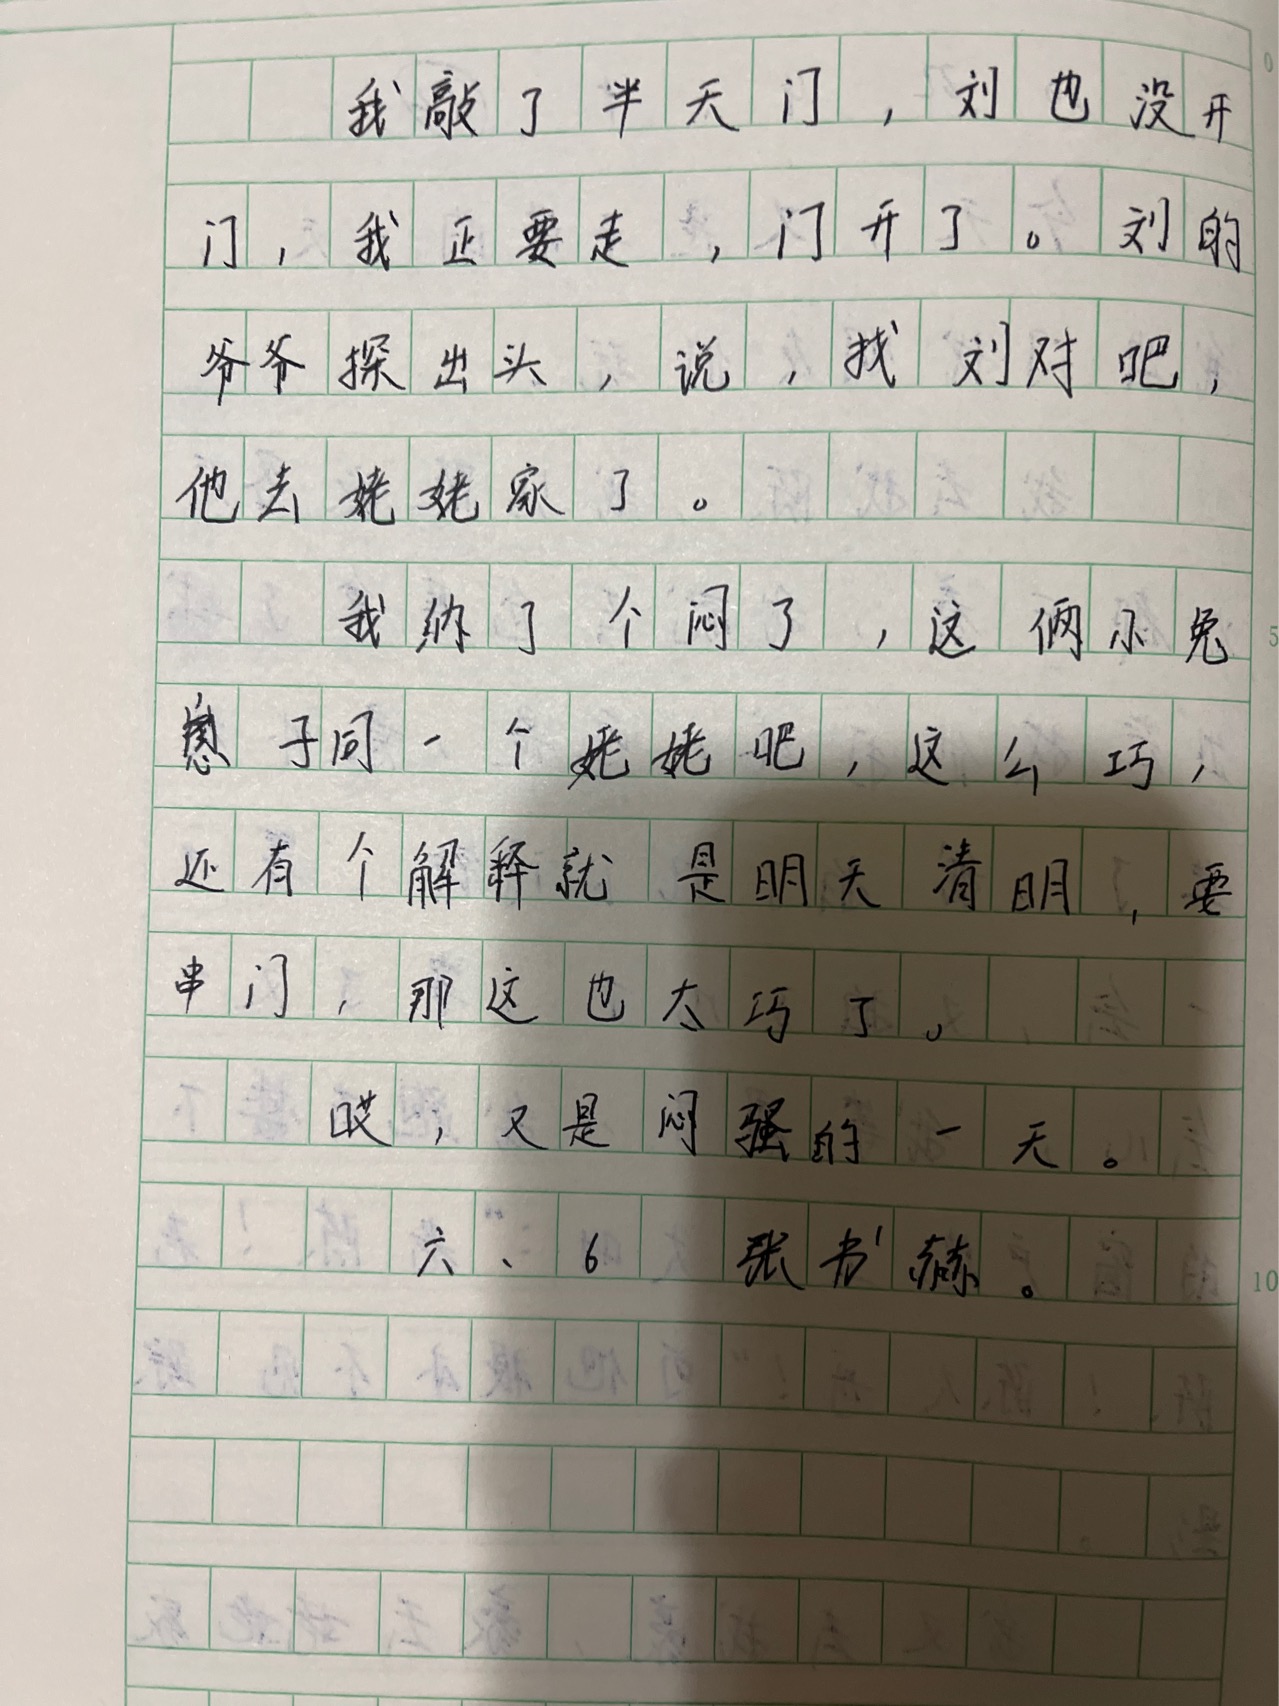 我敲了半天门，刘也没开
门，我正要走，门开了。刘的
爷爷探出头，说，找刘对吧，
他去姥姥家了。
我纳了个闷了，这俩小兔
崽子同一个姥姥吧，这么巧，
还有个解释就是明天清明，要
串门，那这也太巧了。
哎，又是闷骚的一天。
六、6 张书赫。
5
10